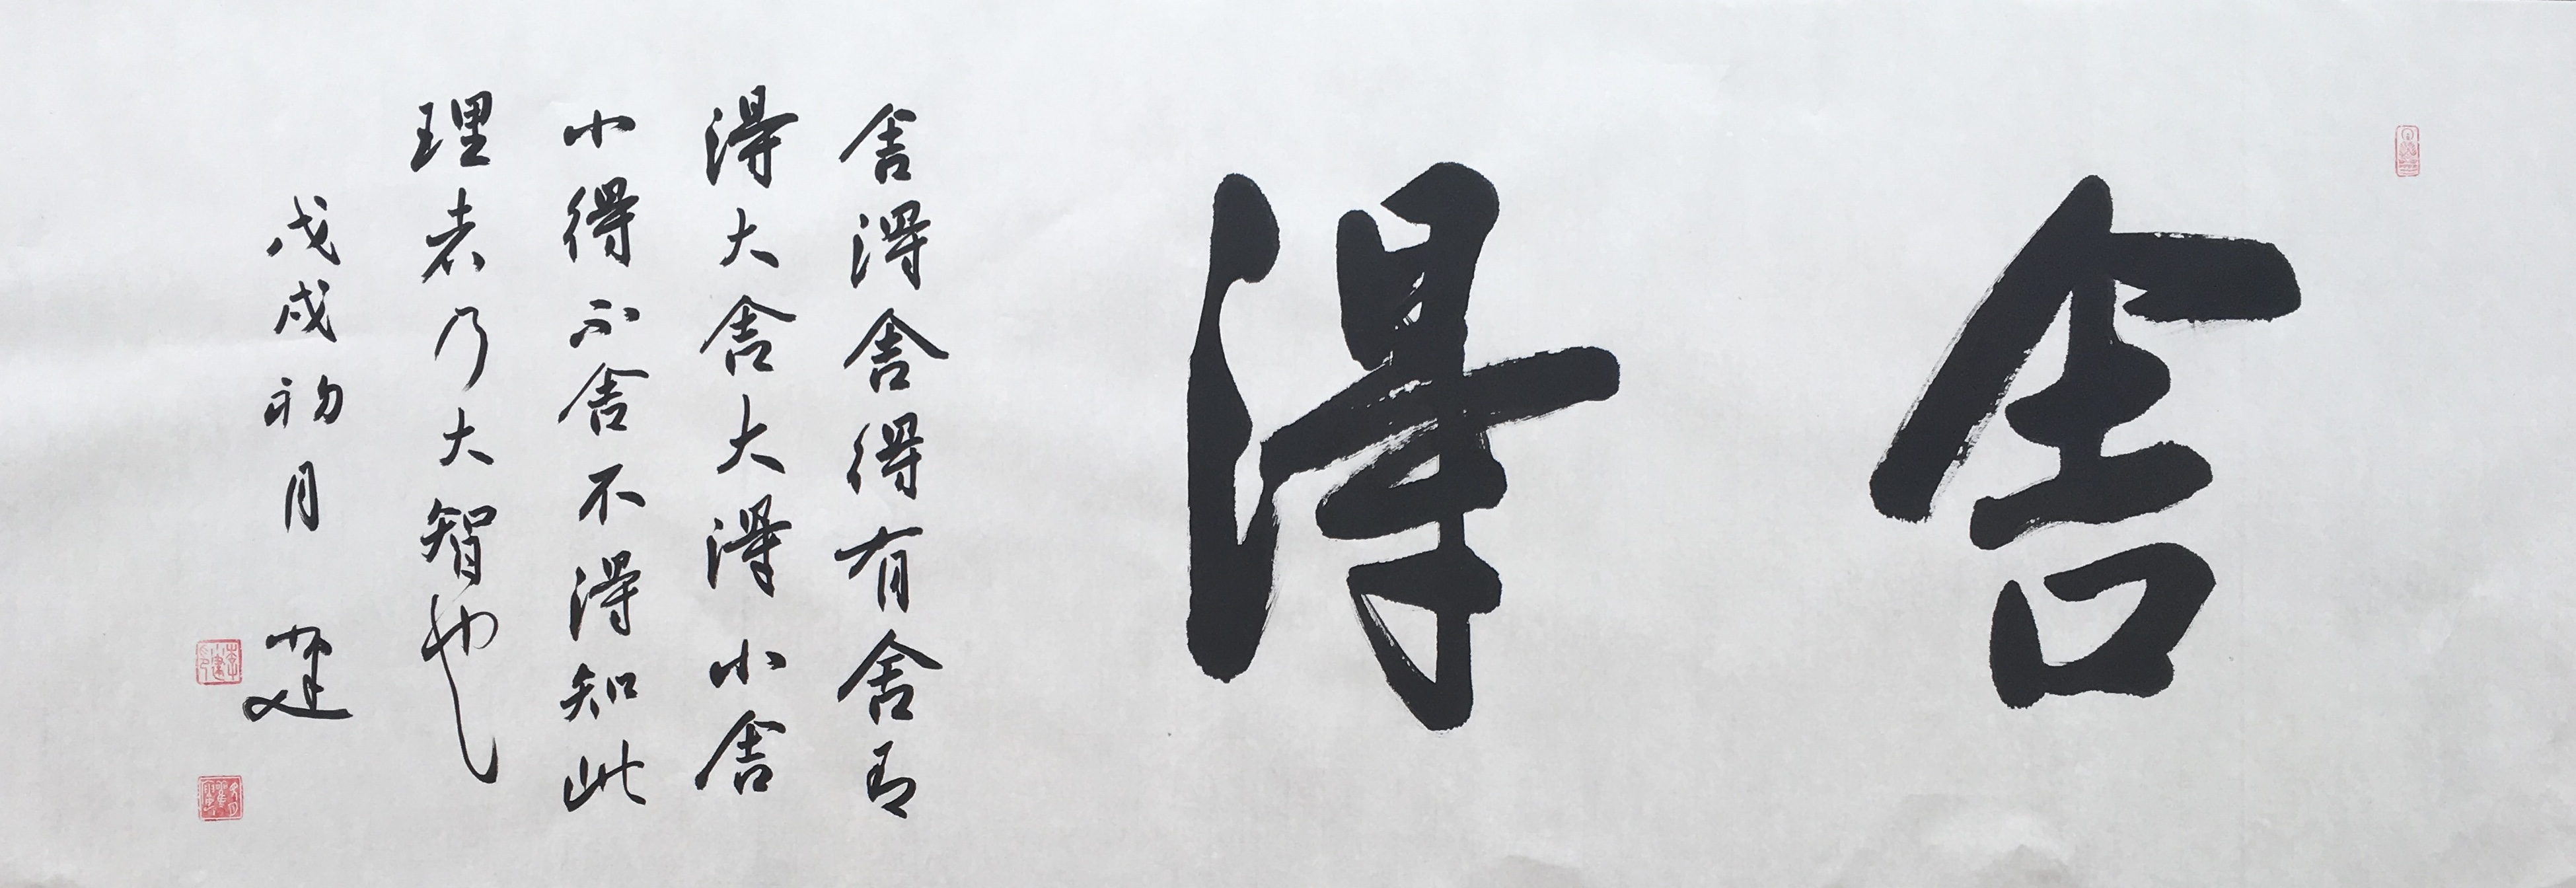 舍得
舍得舍得有舍即
得大舍大得小舍
小得不舍不得知此
理者乃大智也
戊戌初月